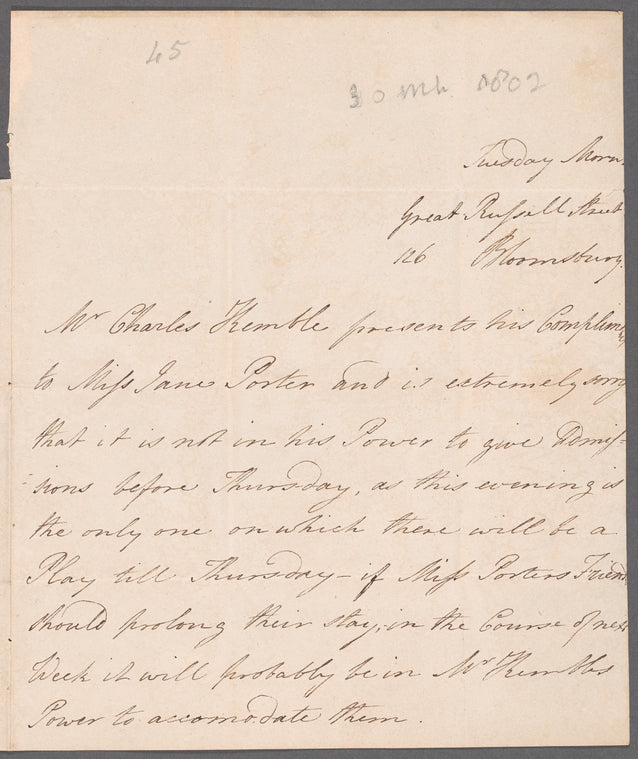 45
30 Mh. 1802
Tuesday Morn.
Great Russell Street
126 Bloomsbury.
Mr Charles Kemble presents his Complim
to Miss Jane Porter and is extremely sorry
that it is not in his Power to give Admis-
sions before Thursday, as this evening is
the only one on which there will be a
Play till Thursday – if Miss Porters Friends
should prolong their stay, in the Course of next
Week it will probably be in Mr Kembles
Power to accomodate them.